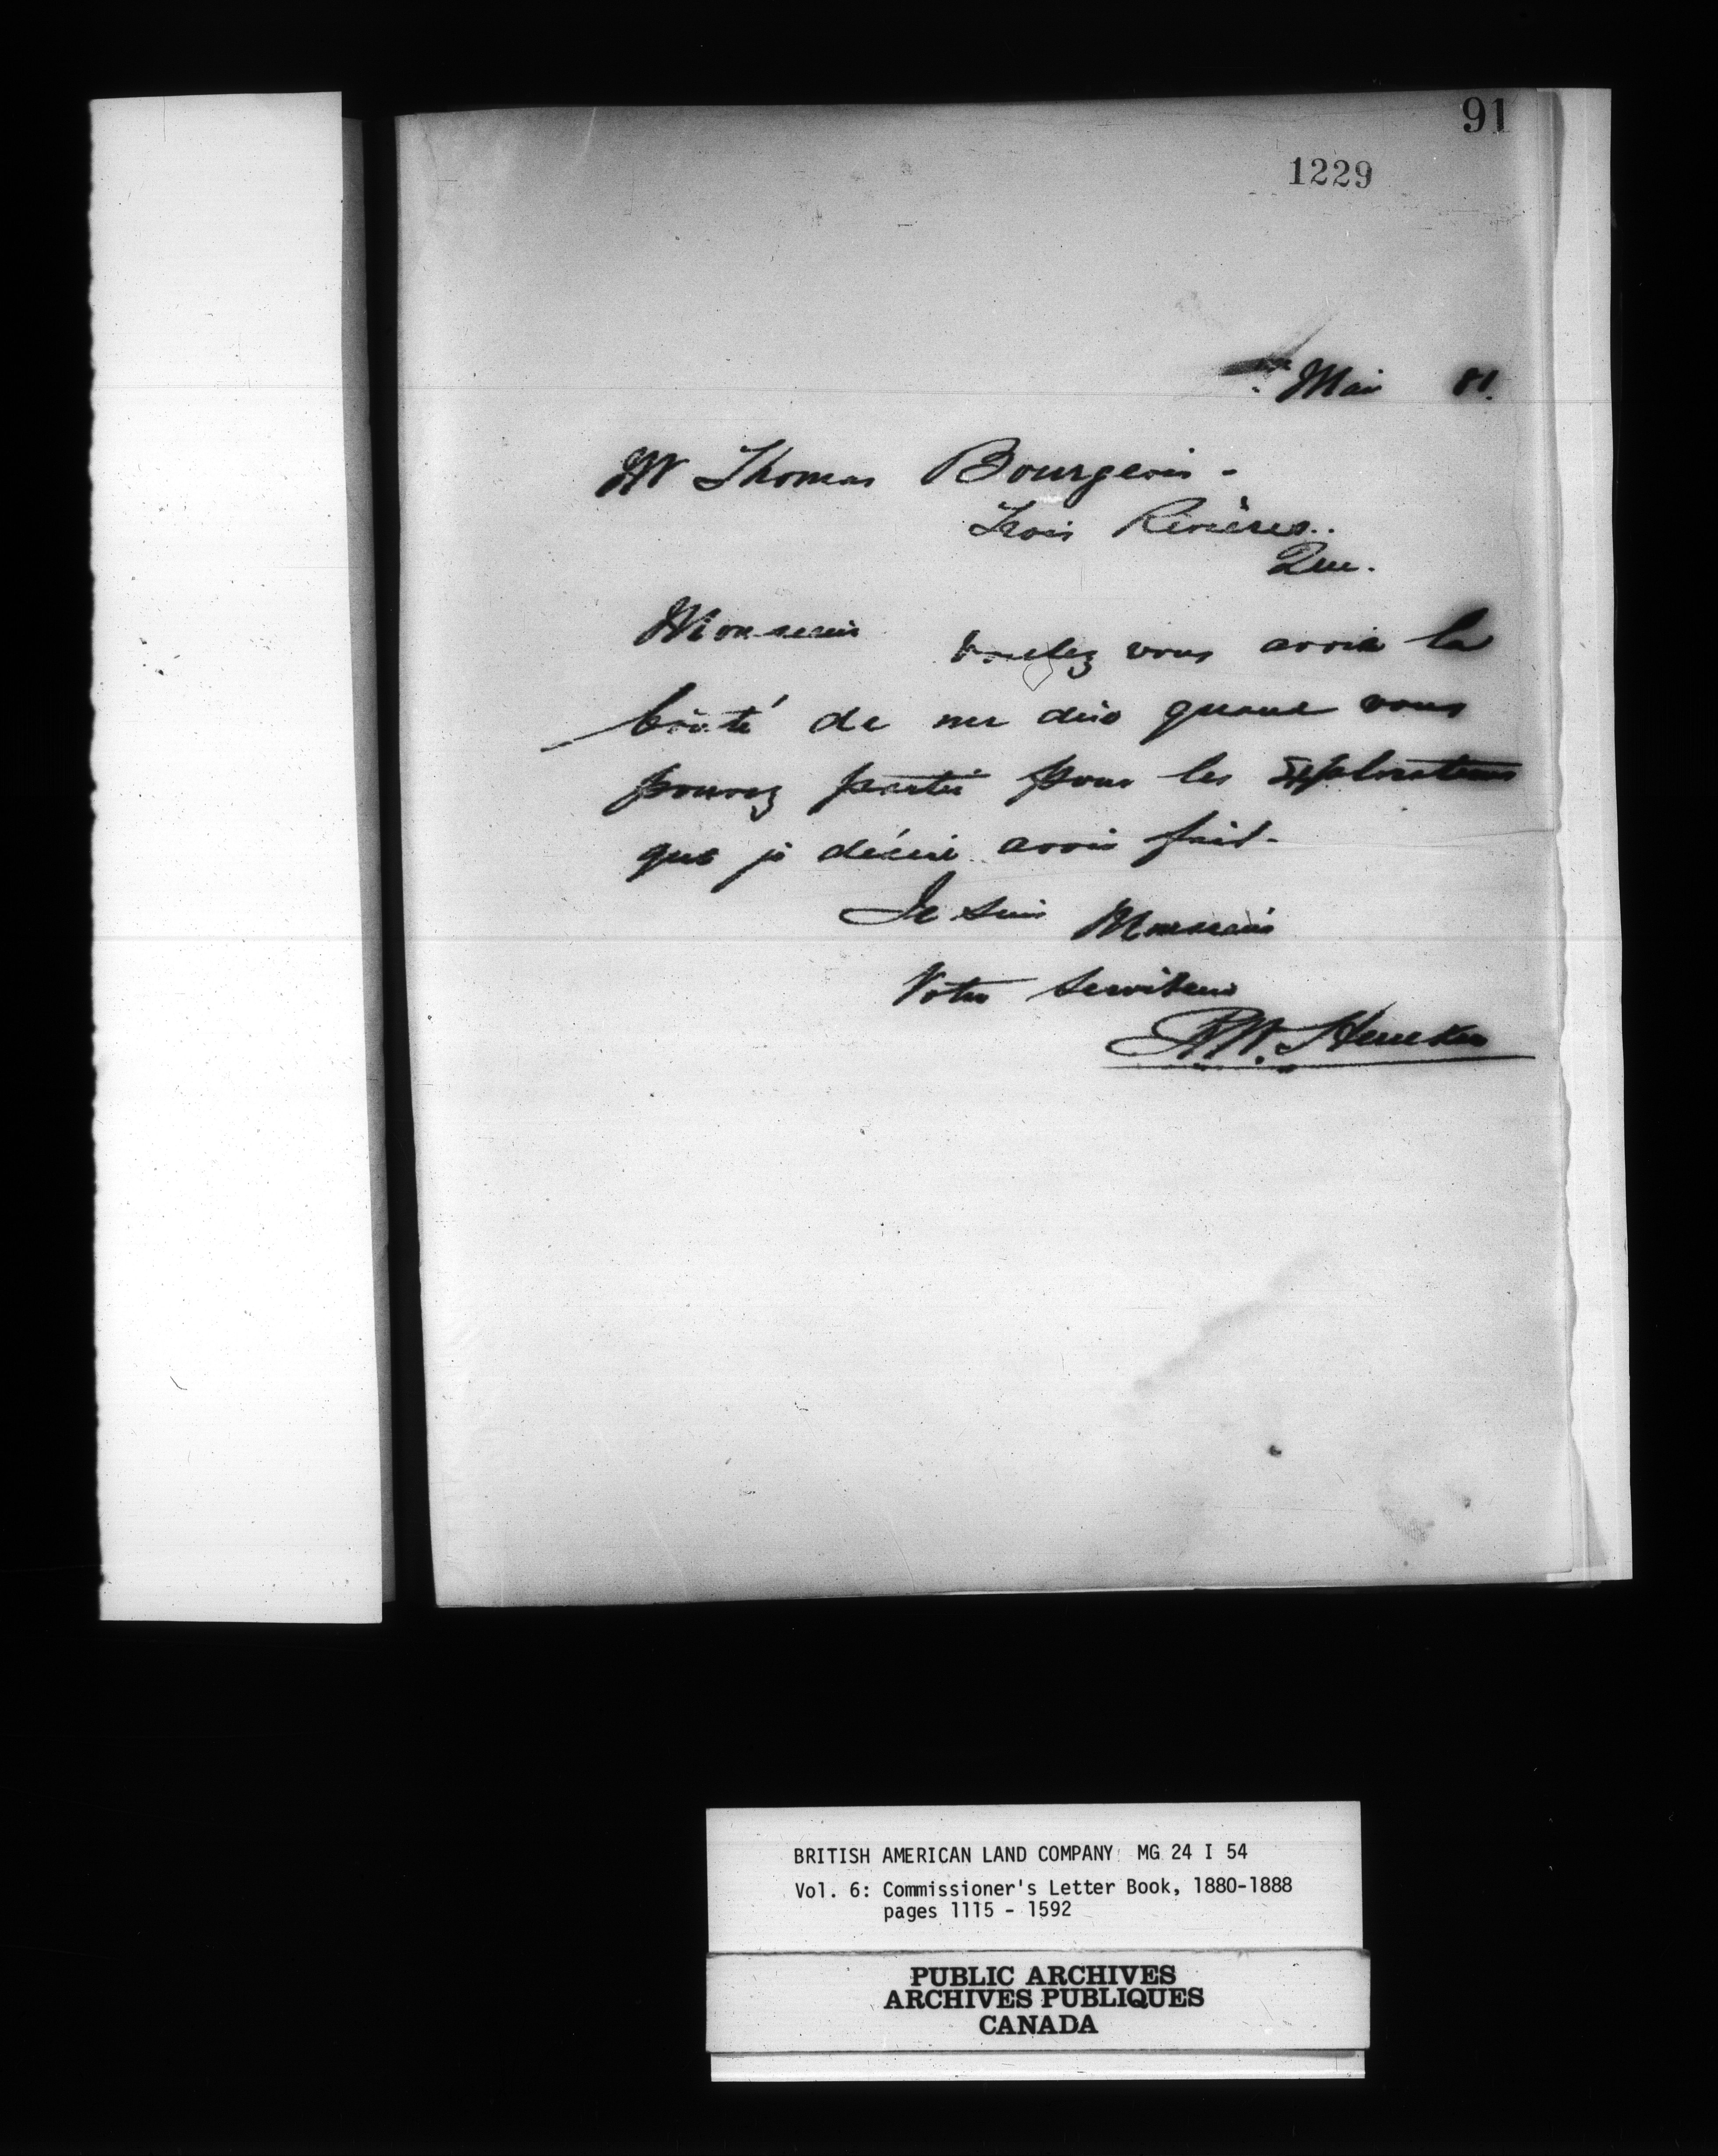 91
1229
Mai 81.
Mr Thomas Bourgeois -
Trois Rivières..
Que.
Monsieur
Voulez vous avoir la
bonté de me dire quand vous
pouvez partir pour les Explorations
que je désire avoir fait -
Je suis Monsieur
Votre Serviteur
R.W. Heneker
BRITISH AMERICAN LAND COMPANY MG 24 I 54
Vol. 6: Commissioner's Letter Book, 1880-1888
pages 1115 - 1592
PUBLIC ARCHIVES
ARCHIVES PUBLIQUES
CANADA